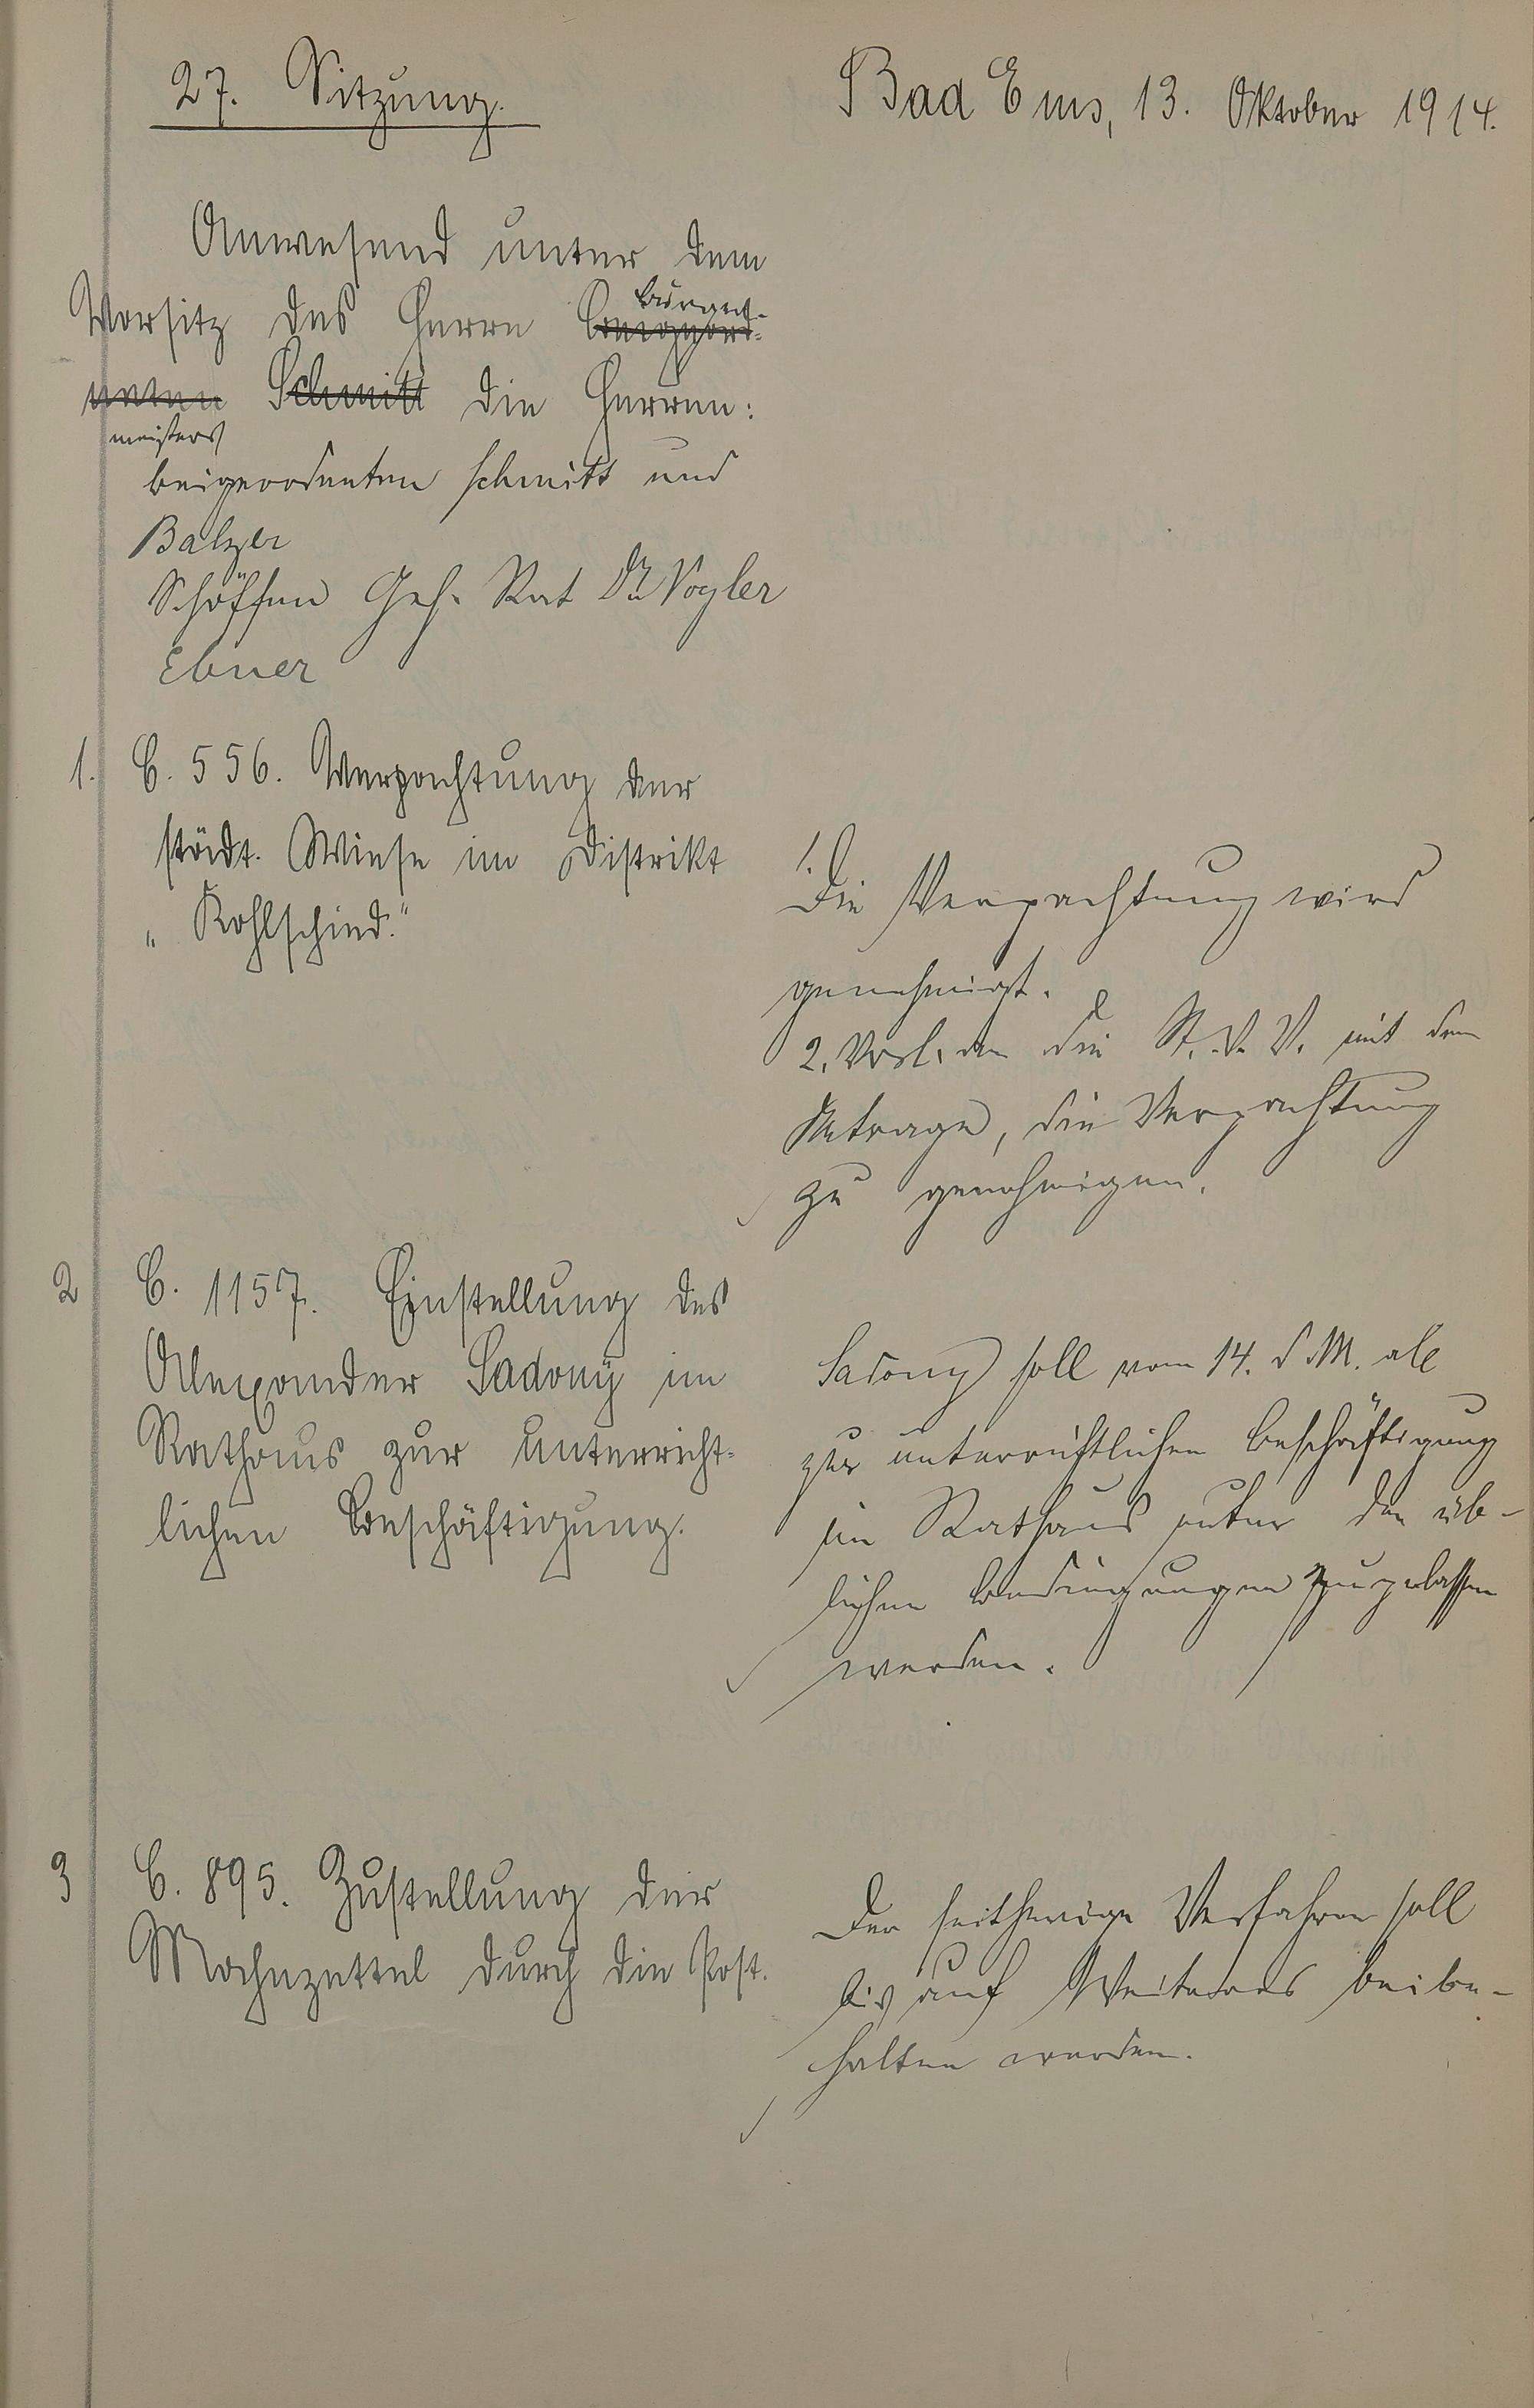 27. Sitzung.
Bad Ems, 13. Oktober 1914.
Anwesend unter dem
Bürger-
Vorsitz des Herrn Beigeord-
neten Schmitt die Herren:
meisters
Beigeordneten Schmitt und
Balzer
Schöffen Geh. Rat Dr Vogler
Ebner
1. C. 556. Verpachtung der
städt. Wiese im Distrikt
„Kohlschied."
1.
Die Verpachtung wird
genehmigt.
2. Vorl. an die St. V. V. mit dem
Antrage, die Verpachtung
zu genehmigen.
2 C. 1157. Einstellung des
Alexander Sadony im
Rathaus zur unterricht-
lichen Beschäftigung.
Sadony soll vom 14. d. M. ab
zur unterrichtlichen Beschäftigung
im Rathaus unter den üb-
lichen Bedingungen zugelassen
werden.
3 C. 895. Zustellung der
Mahnzettel durch die Post.
Das seitherige Verfahren soll
bis auf Weiteres beibe-
halten werden.